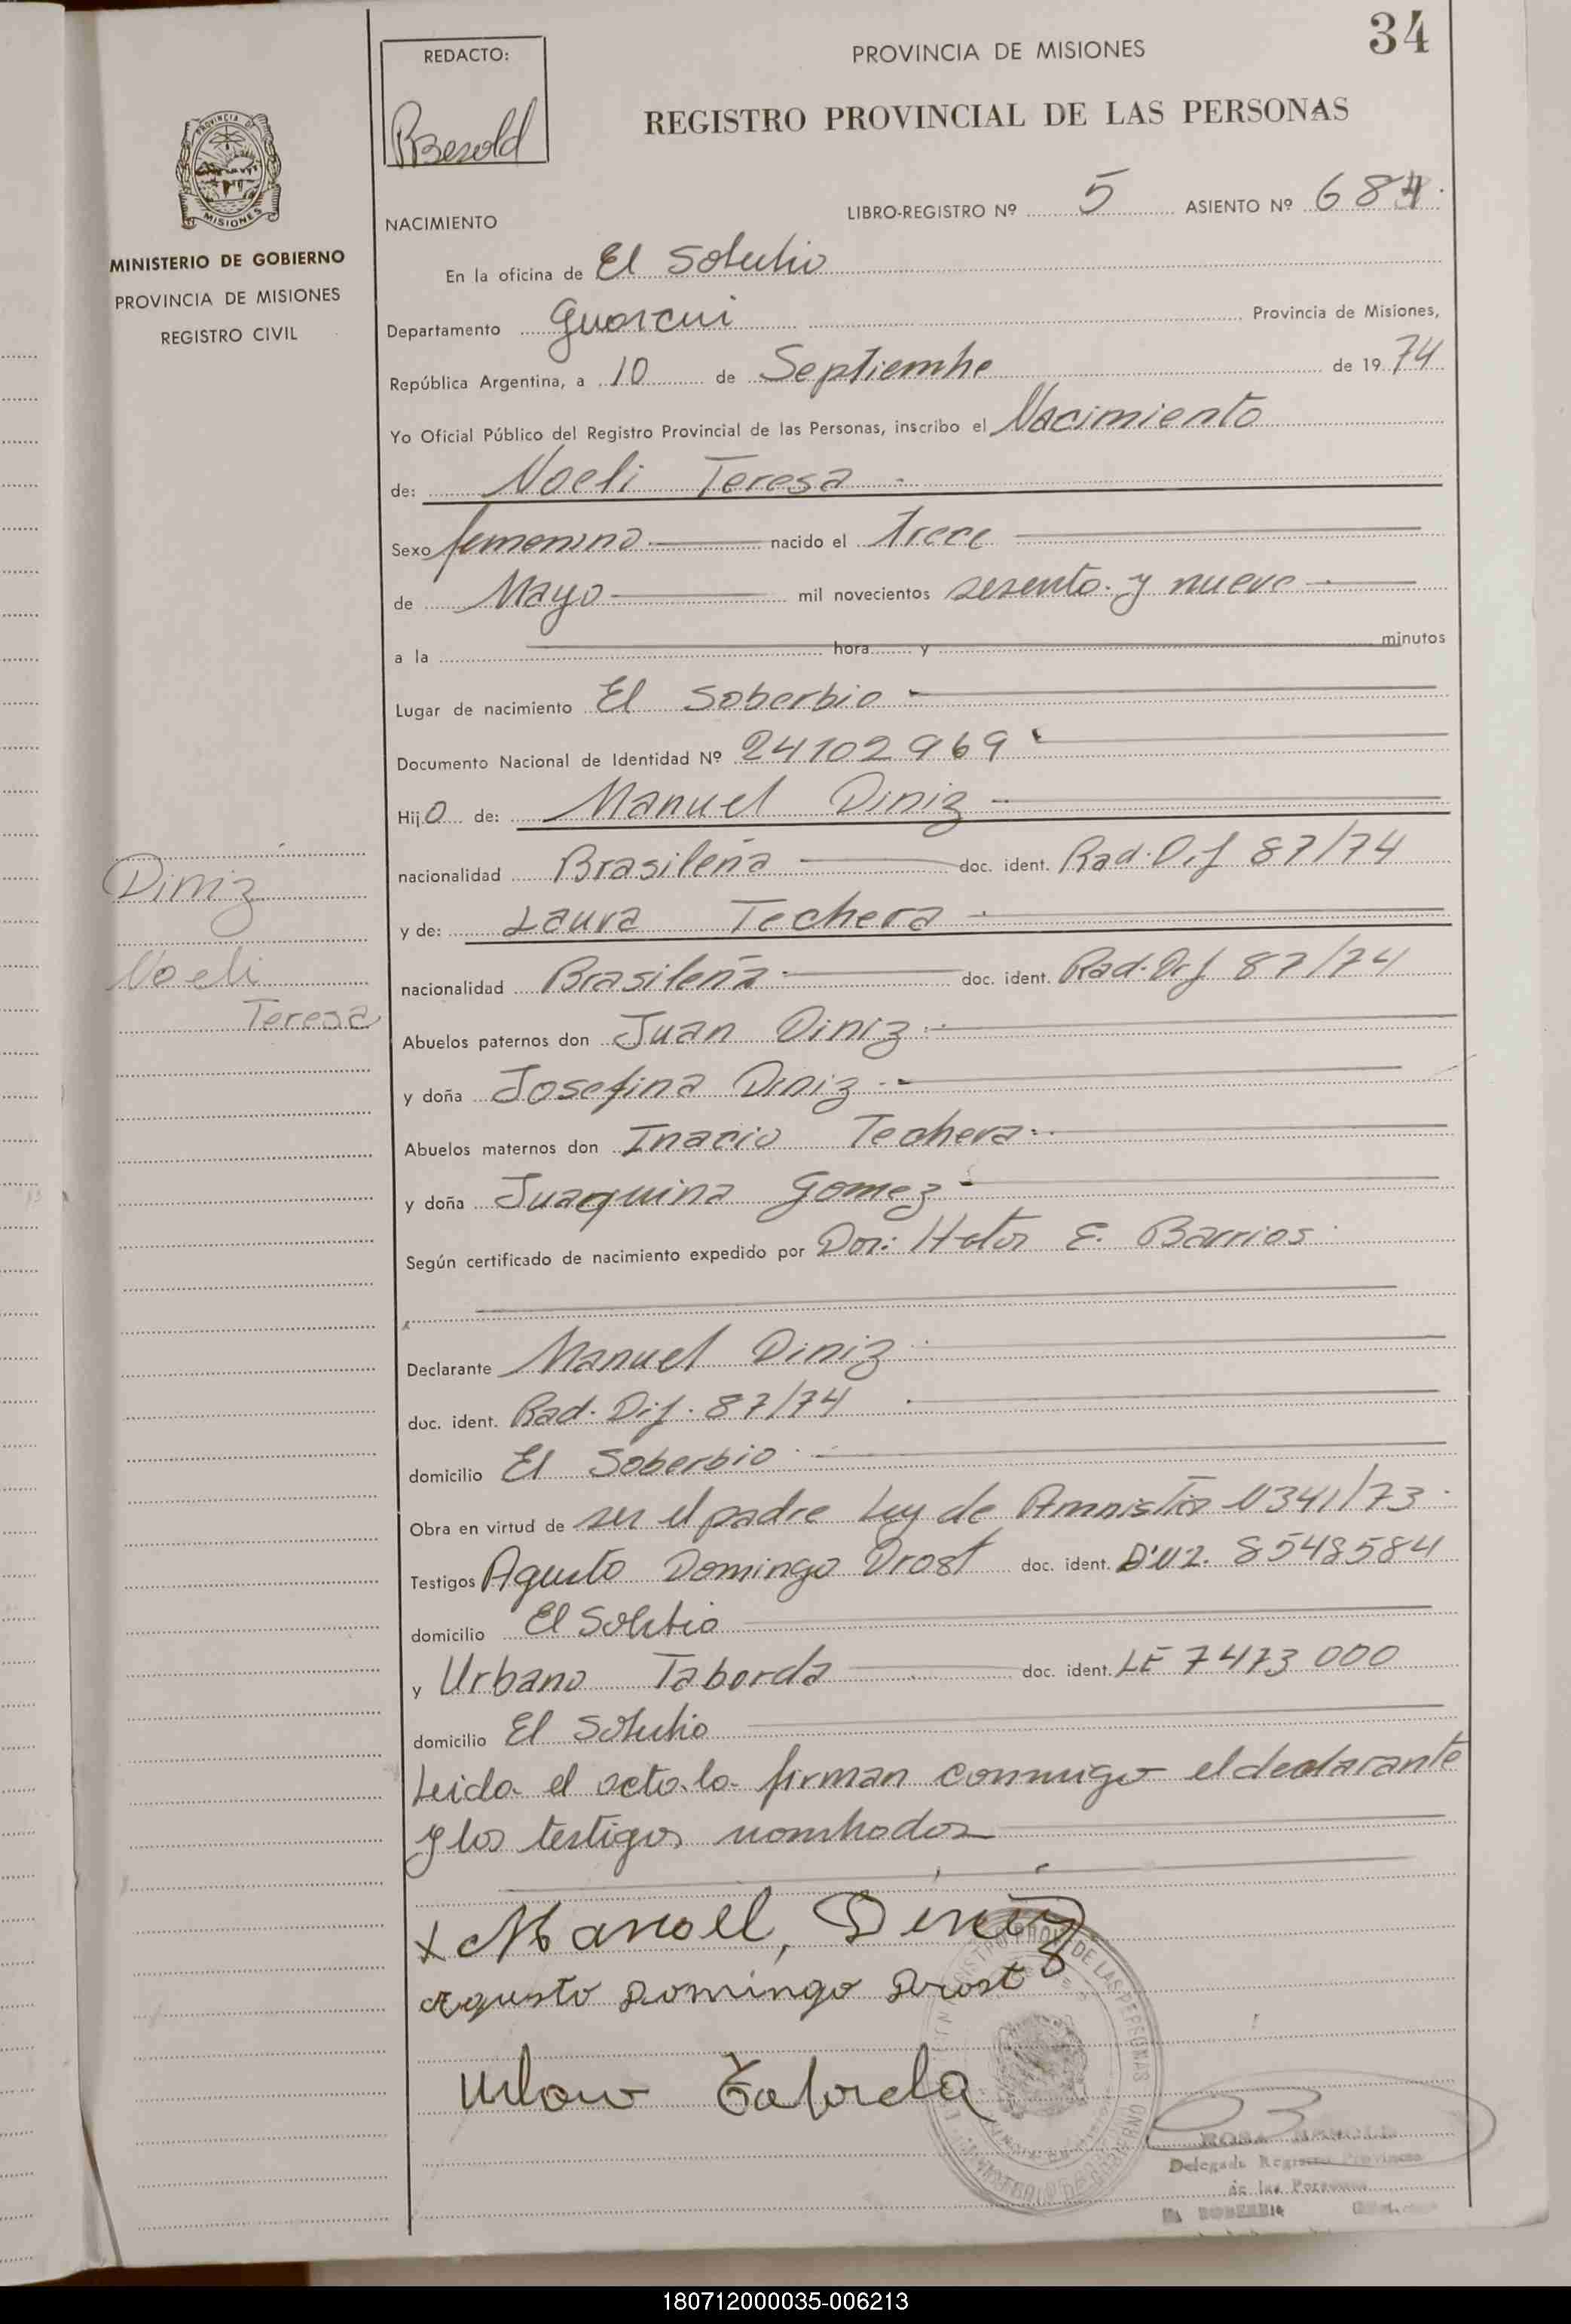 34
REDACTO:
PROVINCIA DE MISIONES
REGISTRO PROVINCIAL DE LAS PERSONAS
PROVINCIA DE
MISIONES
LIBRO-REGISTRO Nº 5 ASIENTO Nº 684
NACIMIENTO
MINISTERIO DE GOBIERNO
PROVINCIA DE MISIONES
REGISTRO CIVIL
En la oficina de El Soberbio
Departamento Guarani Provincia de Misiones,
República Argentina, a 10 de Septiembre de 1974
Yo Oficial Público del Registro Provincial de las Personas, inscribo el Nacimiento
de: Noeli Teresa
Sexo femenino nacido el Trece
de Mayo mil novecientos sesenta y nueve
a la hora y minutos
Lugar de nacimiento El Soberbio
Documento Nacional de Identidad Nº 24102969
Hijo de: Manuel Diniz
nacionalidad Brasileña doc. ident. Rad. Dif 87/74
y de: Laura Techera
nacionalidad Brasileña doc. ident. Rad. Dif 87/74
Diniz
Noeli
Teresa
Abuelos paternos don Juan Diniz
y doña Josefina Diniz
Abuelos maternos don Inacio Techera
y doña Juaquina Gomez
Según certificado de nacimiento expedido por Dor: Hetor E. Barrios
Declarante Manuel Diniz
doc. ident. Rad. Dif. 87/74
domicilio El Soberbio
Obra en virtud de ser el padre Ley de Amnistia N341/73
Testigos Agusto Domingo Drost doc. ident. 8548584
domicilio El Soberbio
y Urbano Taborda doc. ident. LE 7473000
domicilio El Soberbio
Leida el acta la firman conmigo el declarante
y los testigos nombrados
x Manoel, Diniz
Agusto Domingo Drost
Urbano Taborda
Delegada Registro Provincial
de las Personas
EL SOBERBIO
180712000035-006213